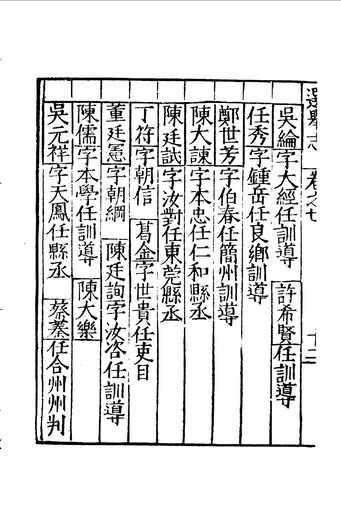 選舉志 卷之七 十二
吳綸字大經任訓導 許希賢任訓導
任秀字鍾岳任良鄉訓導
鄭世芳字伯春任簡州訓導
陳大諫字本忠任仁和縣丞
陳廷試字汝對任東莞縣丞
丁符字朝信 葛金字世貴任吏目
董廷憲字朝綱 陳廷詢字汝咨任訓導
陳儒字本學任訓導 陳大樂
吳元祥字天鳳任縣丞 蔡蓁任合州州判